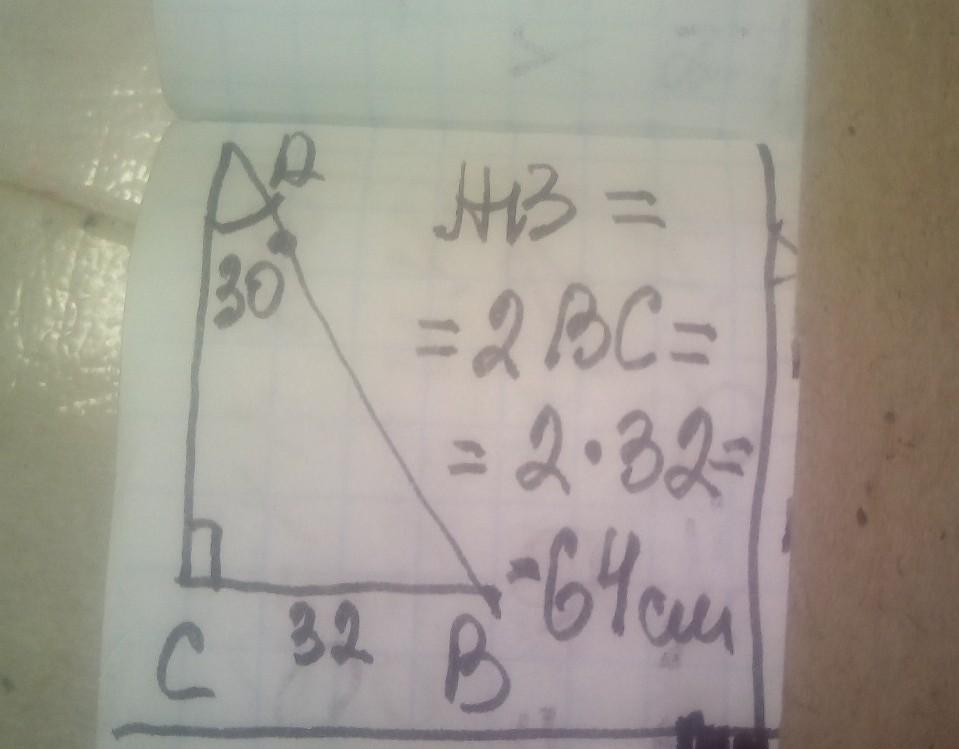 A
30
C
32
B
AB =
= 2 BC =
= 2 · 32 =
= 64 см